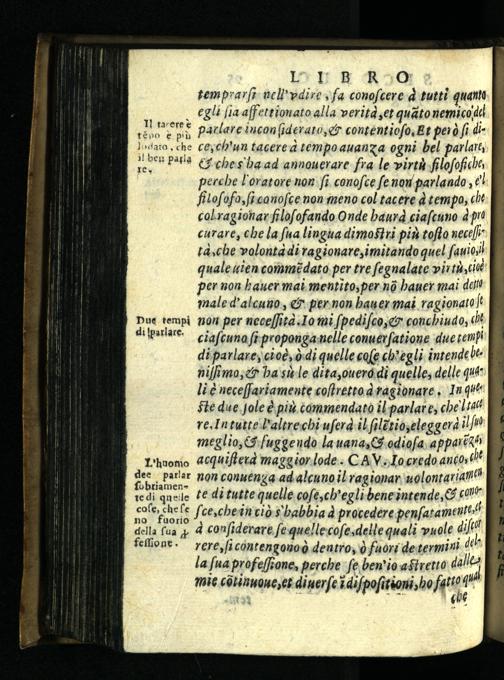 LIBRO
temprarsi nell'vdire, fa conoscere à tutti quanto
egli sia affettionato alla verità, et quãto nemico del
parlare inconsiderato, & contentioso. Et però si di-
ce, ch'un tacere à tempo auanza ogni bel parlare,
& che s'ha ad annouerare fra le virtù filosofiche,
perche l'oratore non si conosce se non parlando, e'l
filosofo, si conosce non meno col tacere à tempo, che
col ragionar filosofando Onde haurà ciascuno à pro
curare, che la sua lingua dimostri più tosto necessi-
tà, che volontà di ragionare, imitando quel sauio, il
quale uien commẽdato per tre segnalate virtù, cioè
per non hauer mai mentito, per nõ hauer mai detto
male d'alcuno, & per non hauer mai ragionato se
non per necessità. Io mi spedisco, & conchiudo, che
ciascuno si proponga nelle conuersatione due tempi
di parlare, cioè, ò di quelle cose ch'egli intende be-
nissimo, & ha sù le dita, ouero di quelle, delle qua-
li è necessariamente costretto à ragionare. In que-
ste due sole è più commendato il parlare, che'l tace
re. In tutte l'altre chi userà il silẽtio, eleggerà il suo
meglio, & fuggendo la uana, & odiosa apparẽza,
acquisterà maggior lode. CAV. Io credo anco, che
non conuenga ad alcuno il ragionar uolontariamen
te di tutte quelle cose, ch'egli bene intende, & cono-
sce, che in ciò s'habbia à procedere pensatamente, et
à considerare se quelle cose, delle quali vuole discor
rere, si contengono ò dentro, ò fuori de termini del-
la sua professione, perche se ben'io astretto dalle
mie cõtinoue, et diuerse ĩdispositioni, ho fatto qual
che
Il tacere è
tẽpo è più
lodato, che
il ben parla
re.
Due tempi
di parlare.
L'huomo
dee parlar
sobriamen-
te di quelle
cose, che so
no fuorio
della sua ꝓ
fessione.